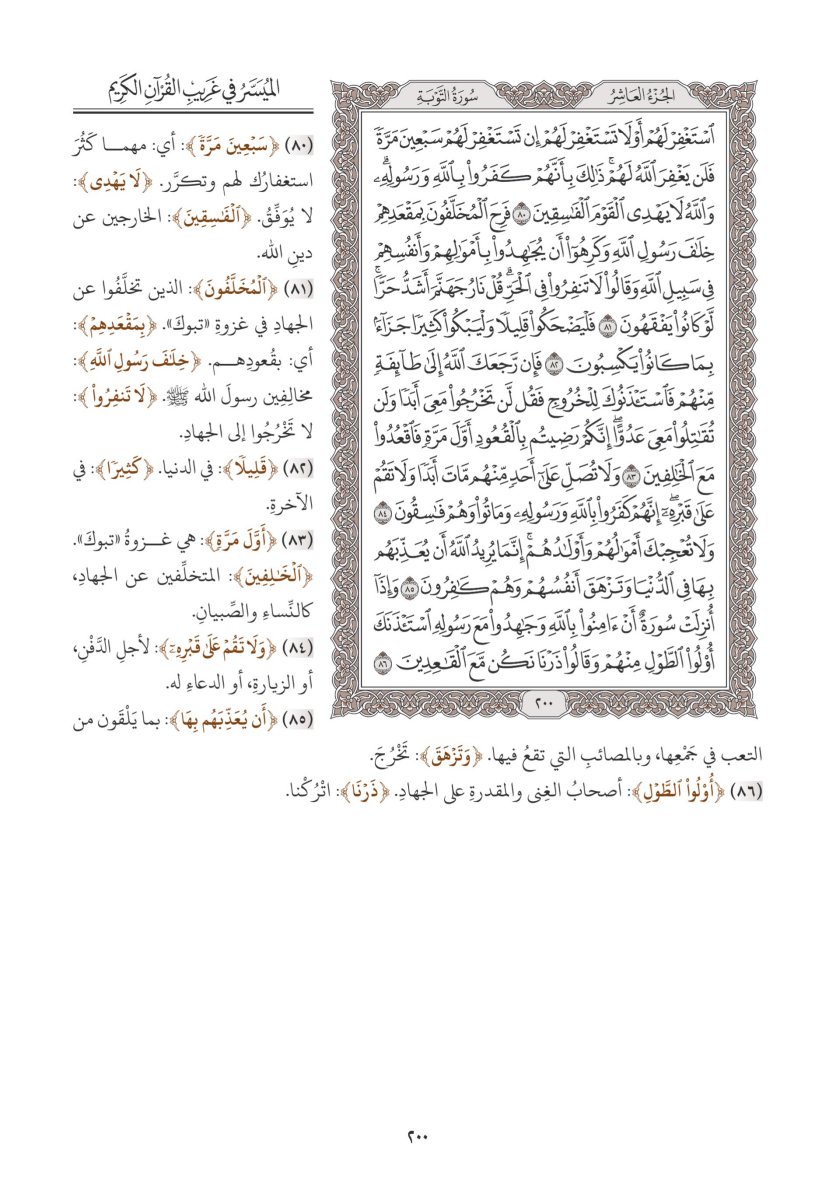 الجُزْءُ العَاشِرُ
سُورَةُ التَّوْبَةِ
ٱسۡتَغۡفِرۡ لَهُمۡ أَوۡ لَا تَسۡتَغۡفِرۡ لَهُمۡ إِن تَسۡتَغۡفِرۡ لَهُمۡ سَبۡعِينَ مَرَّةٗ
فَلَن يَغۡفِرَ ٱللَّهُ لَهُمۡۚ ذَٰلِكَ بِأَنَّهُمۡ كَفَرُواْ بِٱللَّهِ وَرَسُولِهِۦۗ
وَٱللَّهُ لَا يَهۡدِي ٱلۡقَوۡمَ ٱلۡفَٰسِقِينَ ٨٠ فَرِحَ ٱلۡمُخَلَّفُونَ بِمَقۡعَدِهِمۡ
خِلَٰفَ رَسُولِ ٱللَّهِ وَكَرِهُوٓاْ أَن يُجَٰهِدُواْ بِأَمۡوَٰلِهِمۡ وَأَنفُسِهِمۡ
فِي سَبِيلِ ٱللَّهِ وَقَالُواْ لَا تَنفِرُواْ فِي ٱلۡحَرِّۗ قُلۡ نَارُ جَهَنَّمَ أَشَدُّ حَرّٗاۚ
لَّوۡ كَانُواْ يَفۡقَهُونَ ٨١ فَلۡيَضۡحَكُواْ قَلِيلٗا وَلۡيَبۡكُواْ كَثِيرٗا جَزَآءَۢ
بِمَا كَانُواْ يَكۡسِبُونَ ٨٢ فَإِن رَّجَعَكَ ٱللَّهُ إِلَىٰ طَآئِفَةٖ
مِّنۡهُمۡ فَٱسۡتَـٔۡذَنُوكَ لِلۡخُرُوجِ فَقُل لَّن تَخۡرُجُواْ مَعِيَ أَبَدٗا وَلَن
تُقَٰتِلُواْ مَعِيَ عَدُوًّاۖ إِنَّكُمۡ رَضِيتُم بِٱلۡقُعُودِ أَوَّلَ مَرَّةٖ فَٱقۡعُدُواْ
مَعَ ٱلۡخَٰلِفِينَ ٨٣ وَلَا تُصَلِّ عَلَىٰٓ أَحَدٖ مِّنۡهُم مَّاتَ أَبَدٗا وَلَا تَقُمۡ
عَلَىٰ قَبۡرِهِۦٓۖ إِنَّهُمۡ كَفَرُواْ بِٱللَّهِ وَرَسُولِهِۦ وَمَاتُواْ وَهُمۡ فَٰسِقُونَ ٨٤
وَلَا تُعۡجِبۡكَ أَمۡوَٰلُهُمۡ وَأَوۡلَٰدُهُمۡۚ إِنَّمَا يُرِيدُ ٱللَّهُ أَن يُعَذِّبَهُم
بِهَا فِي ٱلدُّنۡيَا وَتَزۡهَقَ أَنفُسُهُمۡ وَهُمۡ كَٰفِرُونَ ٨٥ وَإِذَآ
أُنزِلَتۡ سُورَةٌ أَنۡ ءَامِنُواْ بِٱللَّهِ وَجَٰهِدُواْ مَعَ رَسُولِهِ ٱسۡتَـٔۡذَنَكَ
أُوْلُواْ ٱلطَّوۡلِ مِنۡهُمۡ وَقَالُواْ ذَرۡنَا نَكُن مَّعَ ٱلۡقَٰعِدِينَ ٨٦
٢٠٠
المُيَسَّرُ في غَرِيبِ القُرْآنِ الكَرِيمِ
(٨٠) ﴿سَبۡعِينَ مَرَّةٗ﴾: أي: مهما كَثُرَ
استغفارُك لهم وتكرَّر. ﴿لَا يَهۡدِي﴾:
لا يُوَفِّقُ. ﴿ٱلۡفَٰسِقِينَ﴾: الخارجين عن
دينِ الله.
(٨١) ﴿ٱلۡمُخَلَّفُونَ﴾: الذين تخلَّفُوا عن
الجهادِ في غزوةِ «تبوكَ». ﴿بِمَقۡعَدِهِمۡ﴾:
أي: بقُعودِهم. ﴿خِلَٰفَ رَسُولِ ٱللَّهِ﴾:
مخالِفِين رسولَ الله ﷺ. ﴿لَا تَنفِرُواْ﴾:
لا تَخْرُجُوا إلى الجهادِ.
(٨٢) ﴿قَلِيلٗا﴾: في الدنيا. ﴿كَثِيرٗا﴾: في
الآخرةِ.
(٨٣) ﴿أَوَّلَ مَرَّةٖ﴾: هي غزوةُ «تبوكَ».
﴿ٱلۡخَٰلِفِينَ﴾: المتخلِّفين عن الجهادِ،
كالنِّساءِ والصِّبيانِ.
(٨٤) ﴿وَلَا تَقُمۡ عَلَىٰ قَبۡرِهِۦٓ﴾: لأجلِ الدَّفْنِ،
أو الزيارةِ، أو الدعاءِ له.
(٨٥) ﴿أَن يُعَذِّبَهُم بِهَا﴾: بما يَلْقَون من
التعب في جَمْعِها، وبالمصائبِ التي تقعُ فيها. ﴿وَتَزۡهَقَ﴾: تَخْرُجَ.
(٨٦) ﴿أُوْلُواْ ٱلطَّوۡلِ﴾: أصحابُ الغِنى والمقدرةِ على الجهادِ. ﴿ذَرۡنَا﴾: اتْرُكْنا.
٢٠٠